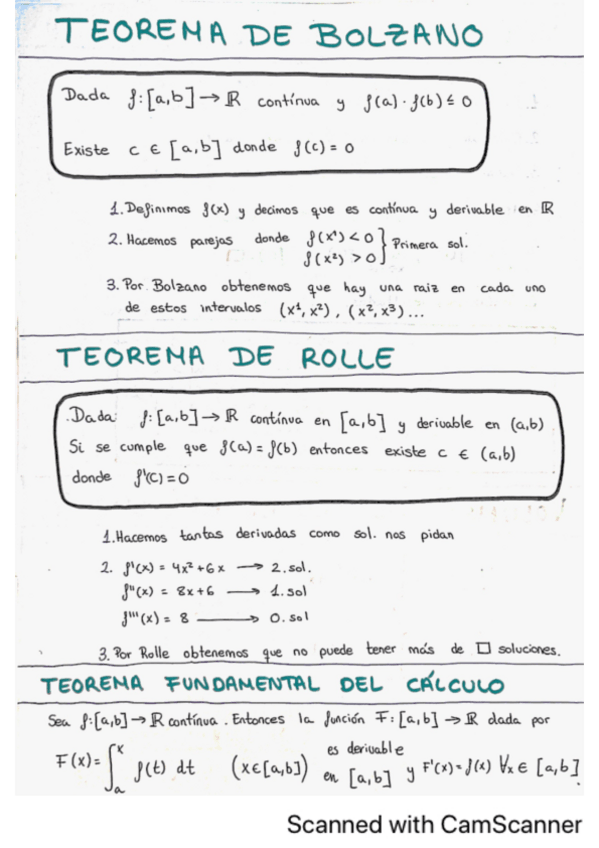 TEOREMA DE BOLZANO
Dada f:[a,b]→ℝ contínua y f(a)·f(b)≤0
Existe c ∈ [a,b] donde f(c)=0
1. Definimos f(x) y decimos que es contínua y derivable en ℝ
2. Hacemos parejas donde f(x¹)<0 } Primera sol.
f(x²)>0
3. Por Bolzano obtenemos que hay una raiz en cada uno
de estos intervalos (x¹,x²), (x²,x³)...
TEOREMA DE ROLLE
Dada f:[a,b]→ℝ contínua en [a,b] y derivable en (a,b)
Si se cumple que f(a)=f(b) entonces existe c ∈ (a,b)
donde f'(c)=0
1. Hacemos tantas derivadas como sol. nos pidan
2. f'(x) = 4x²+6x → 2.sol.
f''(x) = 8x+6 → 1.sol
f'''(x) = 8 → 0.sol
3. Por Rolle obtenemos que no puede tener más de □ soluciones.
TEOREMA FUNDAMENTAL DEL CÁLCULO
Sea f:[a,b]→ℝ contínua. Entonces la función F:[a,b]→ℝ dada por
F(x)=∫ₐˣ f(t) dt (x∈[a,b]) es derivable en [a,b] y F'(x)=f(x) ∀x ∈ [a,b].
Scanned with CamScanner